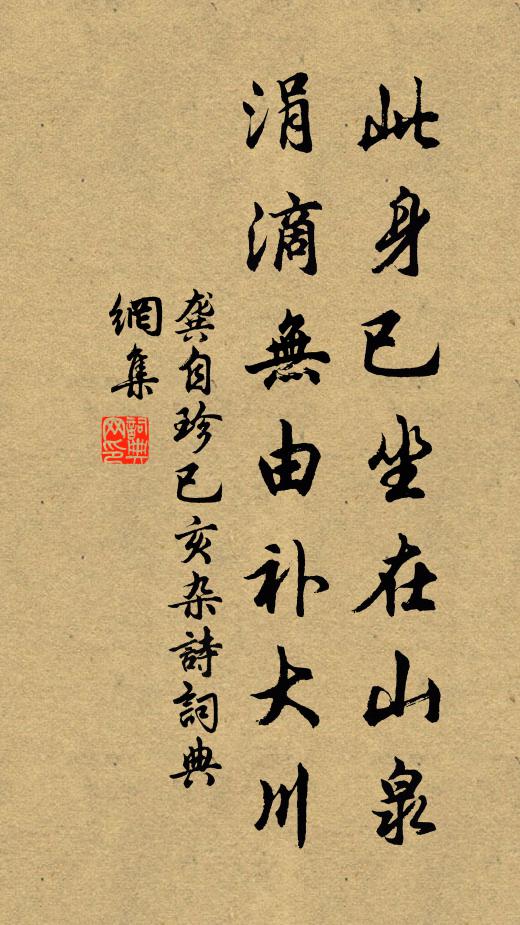 此身已坐在山泉
涓滴無由补大川
龔自珍己亥杂詩詞典
網集
詞典
网印